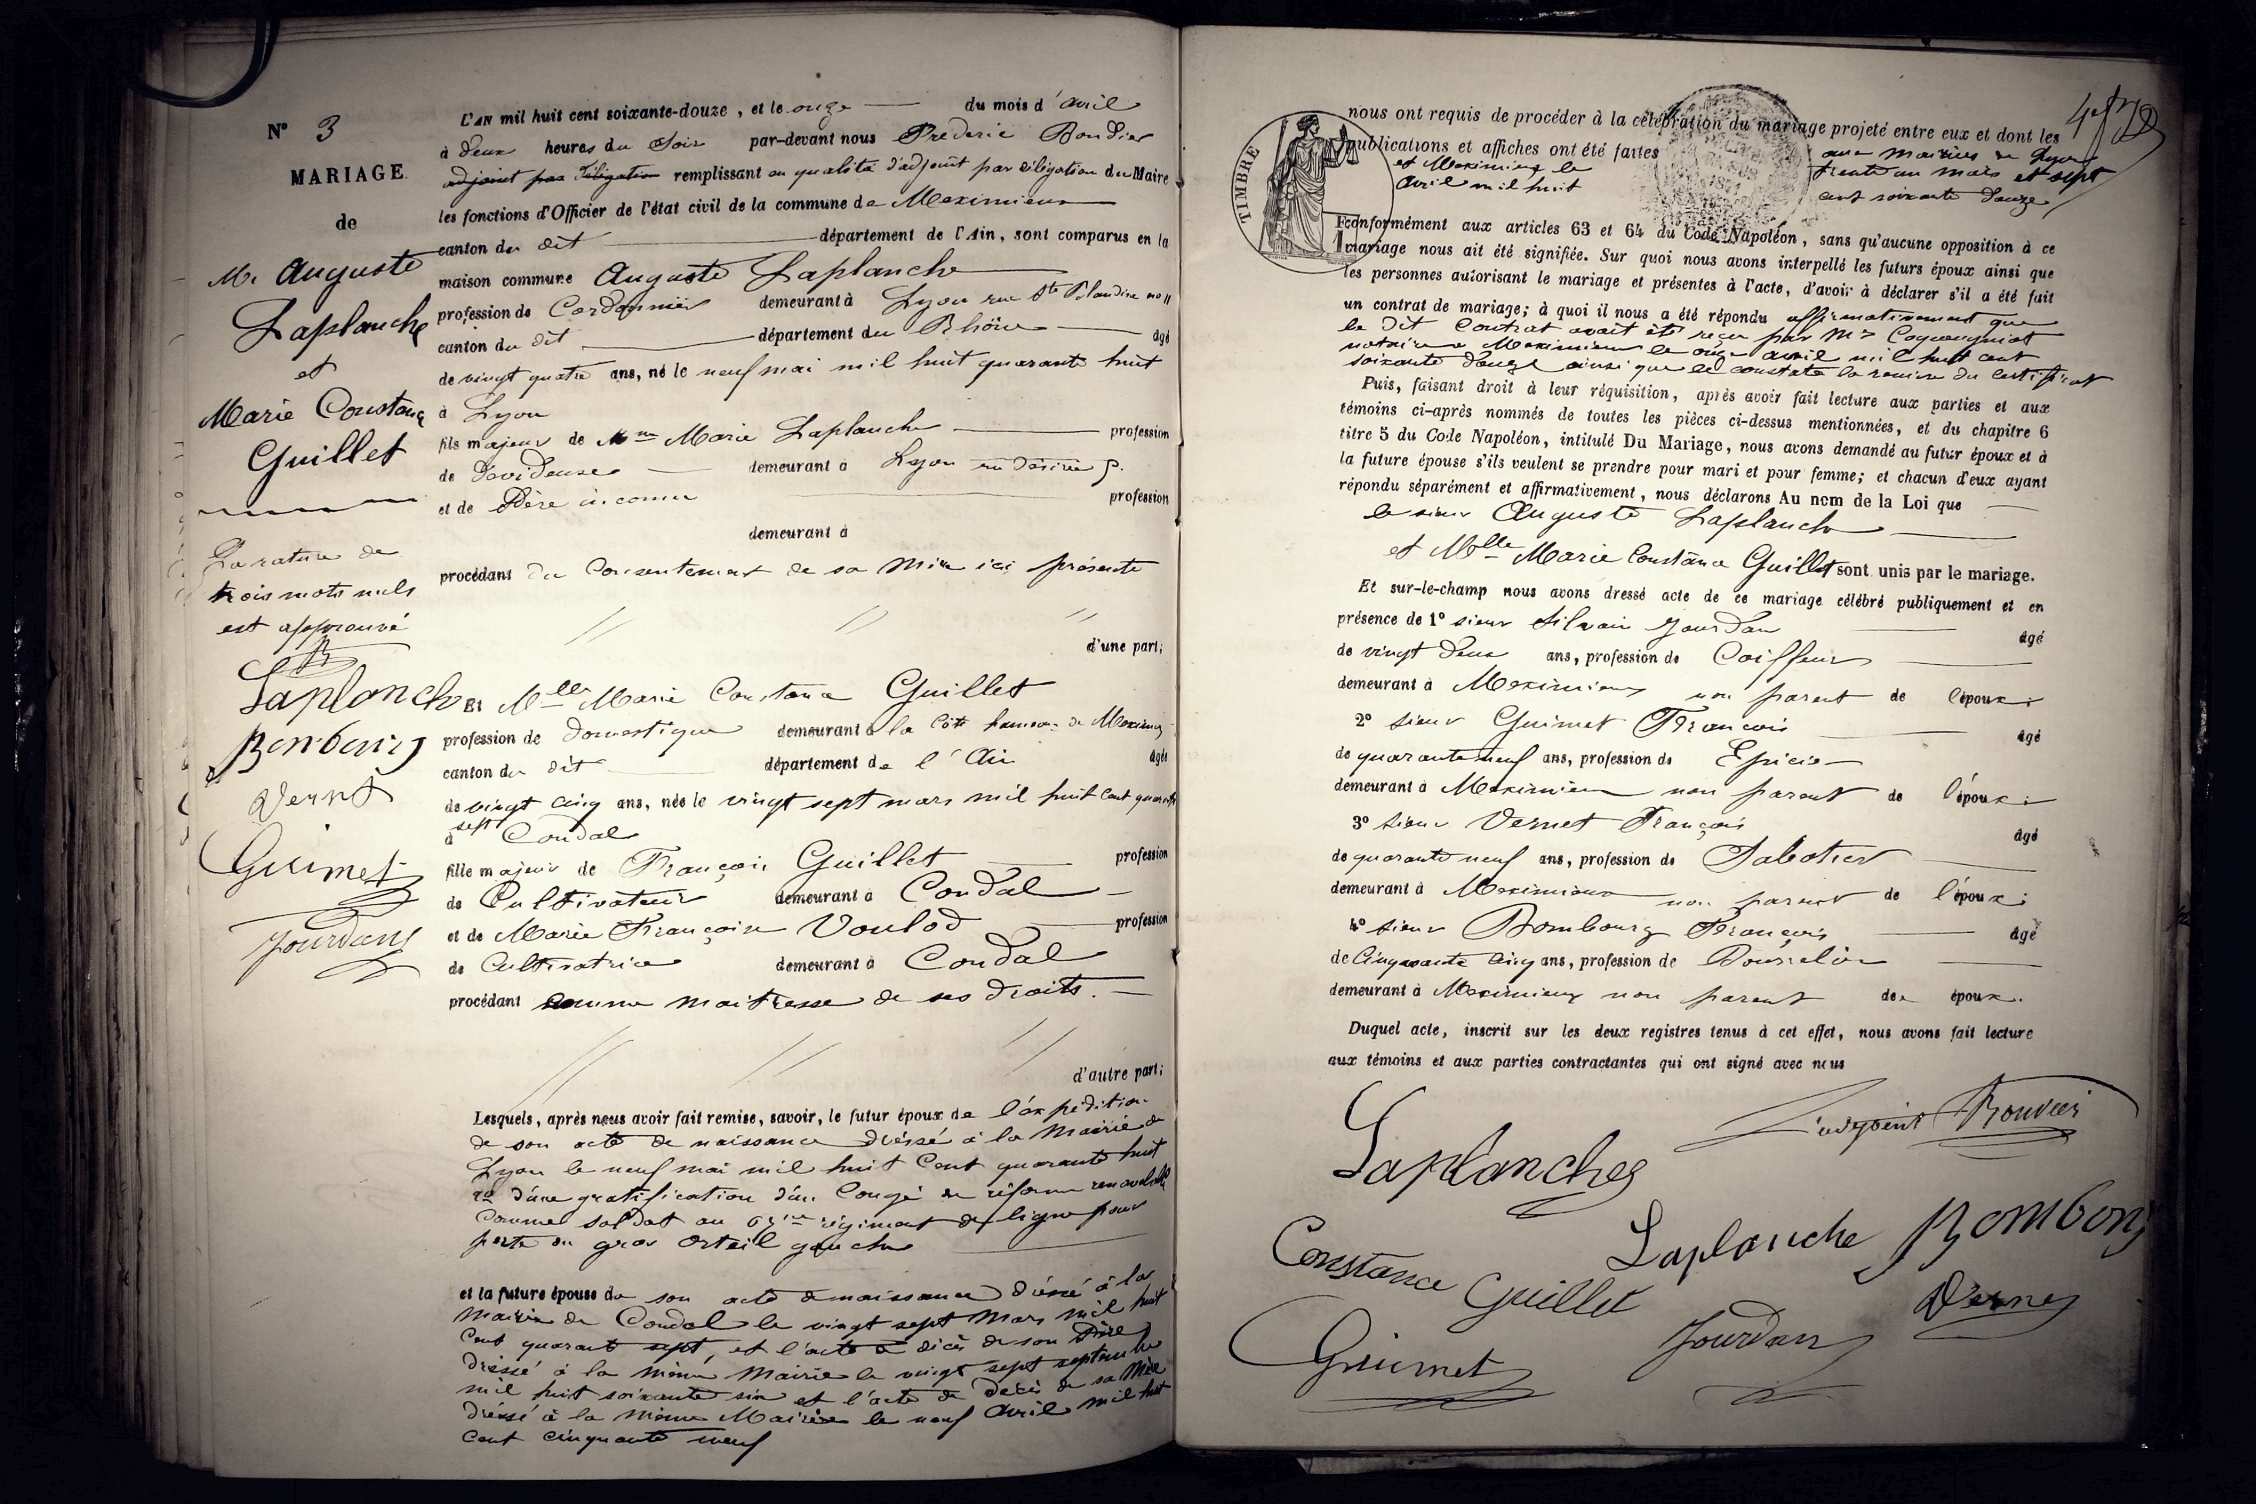 N° 3
MARIAGE
de
M. Auguste
Laplanche
et
Marie Constance
Guillet
La rature de
trois mots nuls
est approuvé
Laplanche
Bombourg
Vernet
Guimet
Jourdan
L'AN mil huit cent soixante-douze, et le onze du mois d'avril
à deux heures du soir par-devant nous Frederic Bouvier
adjoint par délégation remplissant en qualité d'adjoint par délégation du Maire
les fonctions d'Officier de l'état civil de la commune de Meximieux
canton du dit département de l'Ain, sont comparus en la
maison commune Auguste Laplanche
profession de Cordonnier demeurant à Lyon rue Ste Blandine no 11
canton du dit département du Rhône âgé
de vingt quatre ans, né le neuf mai mil huit quarante huit
à Lyon
fils majeur de Marie Laplanche profession
de Devideuse demeurant à Lyon rue
et de Père inconnu profession
demeurant à
procédant du Consentement de sa Mère ici présente
d'une part;
Et Mlle Marie Constance Guillet
profession de Domestique demeurant à la Côte hameau de Meximieux
canton du dit département de l'Ain âgée
de vingt cinq ans, née le vingt sept mars mil huit cent quarante
sept
à Condal
fille majeur de François Guillet profession
de Cultivateur demeurant à Condal
et de Marie Françoise Voulod profession
de Cultivatrice demeurant à Condal
procédant comme maitresse de ses droits.
d'autre part;
Lesquels, après nous avoir fait remise, savoir, le futur époux de l'expédition
de son acte de naissance dréssé à la Mairie de
Lyon le neuf mai mil huit Cent quarante huit
d'une gratification d'un Congé de réforme renouvelable
Comme soldat au régiment de ligne pour
perte du gros Orteil gauche
et la future épouse de son acte de naissance dréssé à la
Mairie de Condal le vingt sept Mars mil huit
Cent quarant sept, et l'acte de décès de son Père
dréssé à la même Mairie le vingt sept septembre
mil huit soixante six et l'acte de Décès de sa Mère
dréssé à la même Mairie le neuf Avril mil huit
cent cinquante neuf
nous ont requis de procéder à la célébration du mariage projeté entre eux et dont les
publications et affiches ont été faites aux mairies de Lyon
et Meximieux le trente un mars et sept
avril mil huit cent soixante douze
TIMBRE
conformément aux articles 63 et 64 du Code Napoléon, sans qu'aucune opposition à ce
mariage nous ait été signifiée. Sur quoi nous avons interpellé les futurs époux ainsi que
les personnes autorisant le mariage et présentes à l'acte, d'avoir à déclarer s'il a été fait
un contrat de mariage; à quoi il nous a été répondu affirmativement que
le dit Contrat avait été reçu par Me
notaire à Meximieux le onze avril mil huit cent
soixante douze ainsi que le constate la remise du certificat
Puis, faisant droit à leur réquisition, après avoir fait lecture aux parties et aux
témoins ci-après nommés de toutes les pièces ci-dessus mentionnées, et du chapitre 6
titre 5 du Code Napoléon, intitulé Du Mariage, nous avons demandé au futur époux et à
la future épouse s'ils veulent se prendre pour mari et pour femme; et chacun d'eux ayant
répondu séparément et affirmativement, nous déclarons Au nom de la Loi que
le sieur Auguste Laplanche
et Mlle Marie Constance Guillet sont unis par le mariage.
Et sur-le-champ nous avons dressé acte de ce mariage célébré publiquement et en
présence de 1° sieur Silvain Jourdan âgé
de vingt deux ans, profession de Coiffeur
demeurant à Meximieux non parent de l'époux;
2° sieur Guimet François âgé
de quarante neuf ans, profession de Epicier
demeurant à Meximieux non parent de l'époux;
3° sieur Vernet François âgé
de quarante neuf ans, profession de Sabotier
demeurant à Meximieux non parent de l'époux;
4° sieur Bombourg François âgé
de Cinquante cinq ans, profession de Bourrelier
demeurant à Meximieux non parent des époux.
Duquel acte, inscrit sur les deux registres tenus à cet effet, nous avons fait lecture
aux témoins et aux parties contractantes qui ont signé avec nous
Laplanche
Bouvier
Laplanche
Constance Guillet
Guimet
Jourdan